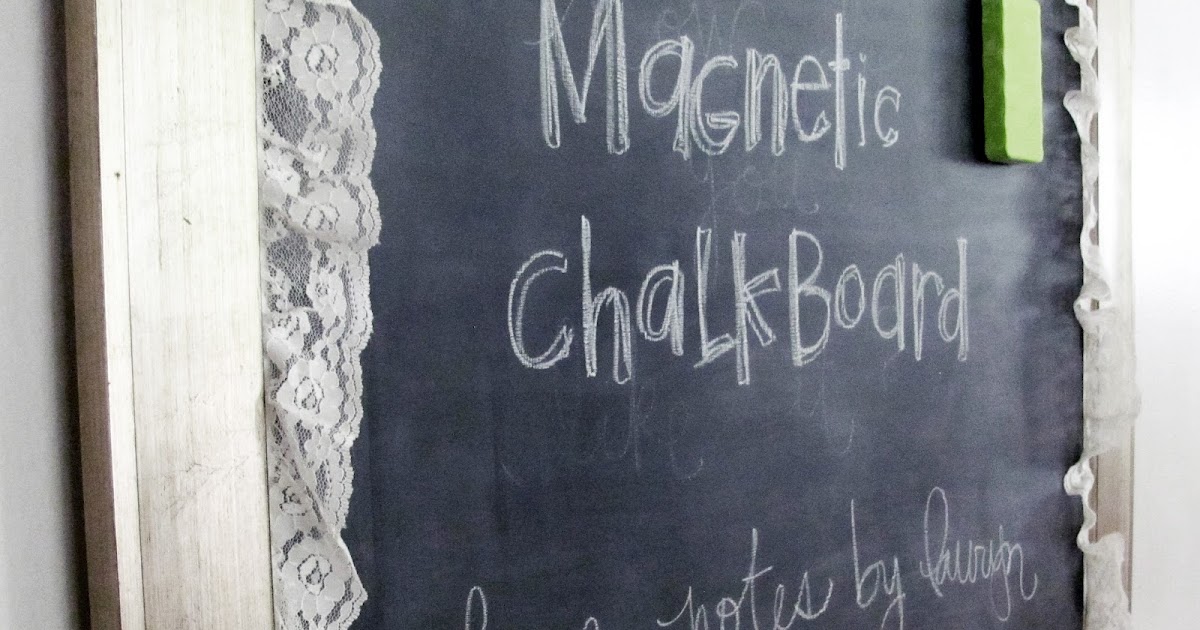 Magnetic
ChalkBoard
notes by lauryn